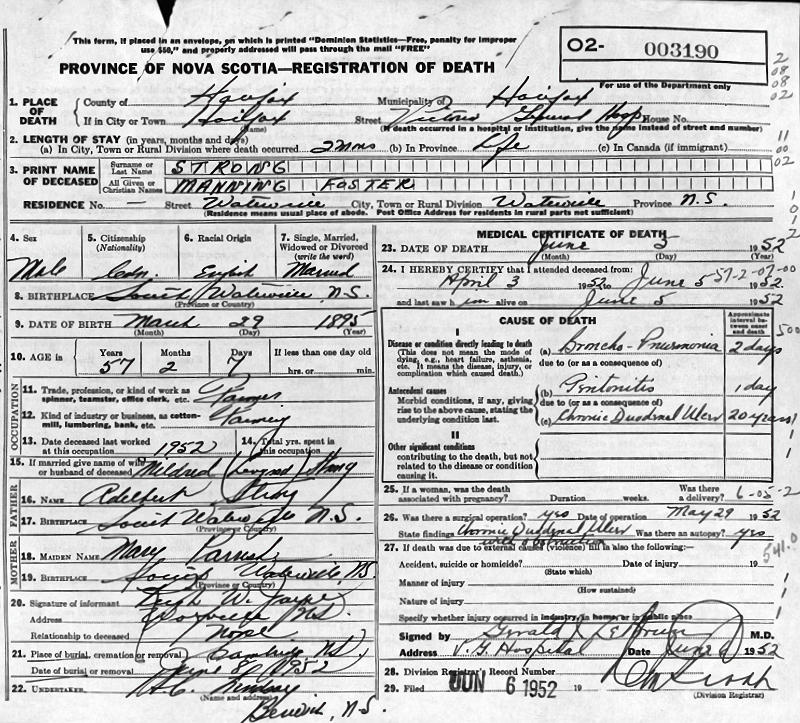 This form, if placed in an envelope, on which is printed "Dominion Statistics—Free, penalty for improper
use $50," and properly addressed will pass through the mail "FREE"
O2- 003190
For use of the Department only
PROVINCE OF NOVA SCOTIA—REGISTRATION OF DEATH
1. PLACE OF DEATH County of Halifax Municipality of Halifax
If in City or Town Halifax Street Victoria General Hosp House No.
(Name) (If death occurred in a hospital or institution, give the name instead of street and number)
2. LENGTH OF STAY (in years, months and days)
(a) In City, Town or Rural Division where death occurred 2 mos (b) In Province Life (c) In Canada (if immigrant)
3. PRINT NAME OF DECEASED Surname or Last Name STRONG
All Given or Christian Names MANNING FOSTER
RESIDENCE No. — Street Waterville City, Town or Rural Division Waterville Province N.S.
(Residence means usual place of abode. Post Office Address for residents in rural parts not sufficient)
4. Sex 5. Citizenship (Nationality) 6. Racial Origin 7. Single, Married, Widowed or Divorced (write the word)
Male Cdn. English Married
8. BIRTHPLACE South Waterville N.S.
(Province or Country)
9. DATE OF BIRTH March 29 1895
(Month) (Day) (Year)
10. AGE in Years Months Days If less than one day old
57 2 7 hrs. or min.
OCCUPATION
11. Trade, profession, or kind of work as spinner, teamster, office clerk, etc. Farmer
12. Kind of industry or business, as cotton-mill, lumbering, bank, etc. Farming
13. Date deceased last worked at this occupation 1952 14. Total yrs. spent in this occupation
15. If married give name of wife or husband of deceased Mildred Strong
FATHER
16. NAME Adelbert Strong
17. BIRTHPLACE South Waterville N.S.
(Province or Country)
MOTHER
18. MAIDEN NAME Mary
19. BIRTHPLACE Waterville, N.S.
(Province or Country)
20. Signature of informant W.
Address N.S.
Relationship to deceased None
21. Place of burial, cremation or removal Cambridge N.S.
Date of burial or removal June 8, 1952
22. UNDERTAKER
(Name and address)
Berwick, N.S.
MEDICAL CERTIFICATE OF DEATH
23. DATE OF DEATH June 5 1952
(Month) (Day) (Year)
24. I HEREBY CERTIFY that I attended deceased from:
April 3 1952 to June 5 1952
and last saw him alive on June 5 1952
57-2-07-00
CAUSE OF DEATH
Approximate interval between onset and death
I
Disease or condition directly leading to death
(This does not mean the mode of dying, e.g., heart failure, asthenia, etc. It means the disease, injury, or complication which caused death.)
(a) Broncho-Pneumonia 2 days
due to (or as a consequence of)
Antecedent causes
Morbid conditions, if any, giving rise to the above cause, stating the underlying condition last.
(b) Peritonitis 1 day
due to (or as a consequence of)
(c) Chronic Duodenal Ulcer 20 years
II
Other significant conditions
contributing to the death, but not related to the disease or condition causing it.
25. If a woman, was the death associated with pregnancy? Duration weeks. Was there a delivery?
26. Was there a surgical operation? yes Date of operation May 29 1952
State findings Chronic Duodenal Ulcer with obstruction Was there an autopsy? yes
27. If death was due to external causes (violence) fill in also the following:—
Accident, suicide or homicide? Date of injury 19
(State which)
Manner of injury
(How sustained)
Nature of injury
Specify whether injury occurred in industry, in home, or in public place
541.0
Signed by Gerald M.D.
Address V. G. Hospital Date June 6 1952
28. Division Registrar's Record Number
29. Filed JUN 6 1952 19
(Division Registrar)